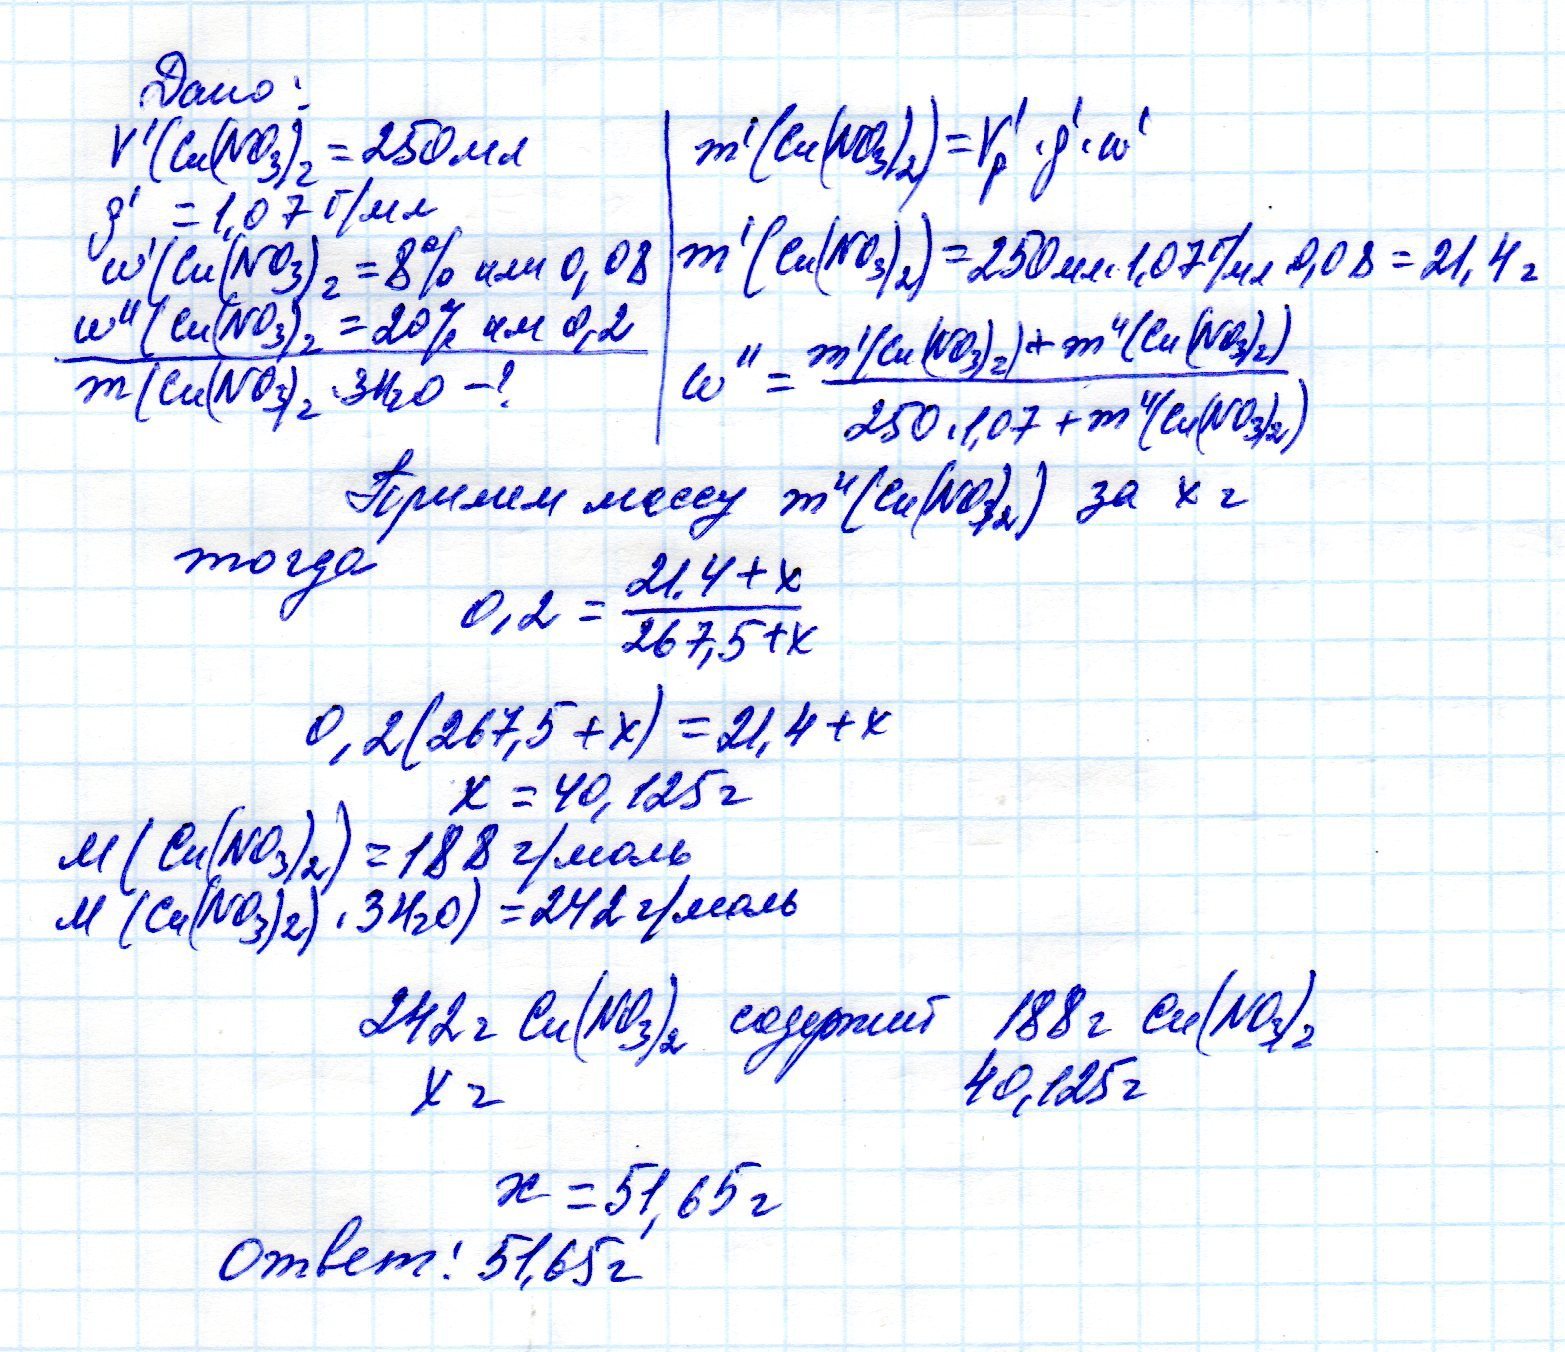 Дано:
V'(Cu(NO3)2 = 250 мл
ρ' = 1,07 г/мл
w'(Cu(NO3)2 = 8% или 0,08
w"(Cu(NO3)2 = 20% или 0,2
m(Cu(NO3)2·3H2O – ?
m'(Cu(NO3)2) = Vр'·ρ'·w'
m'(Cu(NO3)2) = 250 мл·1,07 г/мл·0,08 = 21,4 г
w" = m'(Cu(NO3)2) + m"(Cu(NO3)2) / 250·1,07 + m"(Cu(NO3)2)
Примем массу m"(Cu(NO3)2) за x г
тогда
0,2 = 21.4+x / 267,5+x
0,2(267,5+x) = 21,4+x
x = 40,125 г
M(Cu(NO3)2) = 188 г/моль
M(Cu(NO3)2)·3H2O) = 242 г/моль
242 г Cu(NO3)2 содержит 188 г Cu(NO3)2
x г 40,125 г
x = 51,65 г
Ответ: 51,65 г